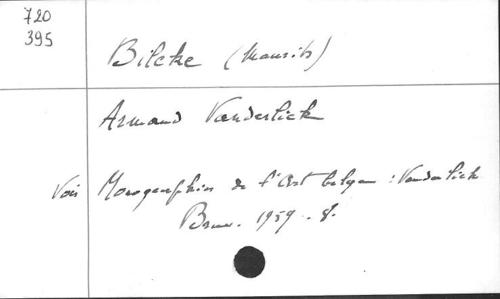 720
395
Bilcke (Maurits)
Armand Vanderlick
Voir Monographies de l'Art belge : Vanderlick
Brux. 1959. 8.